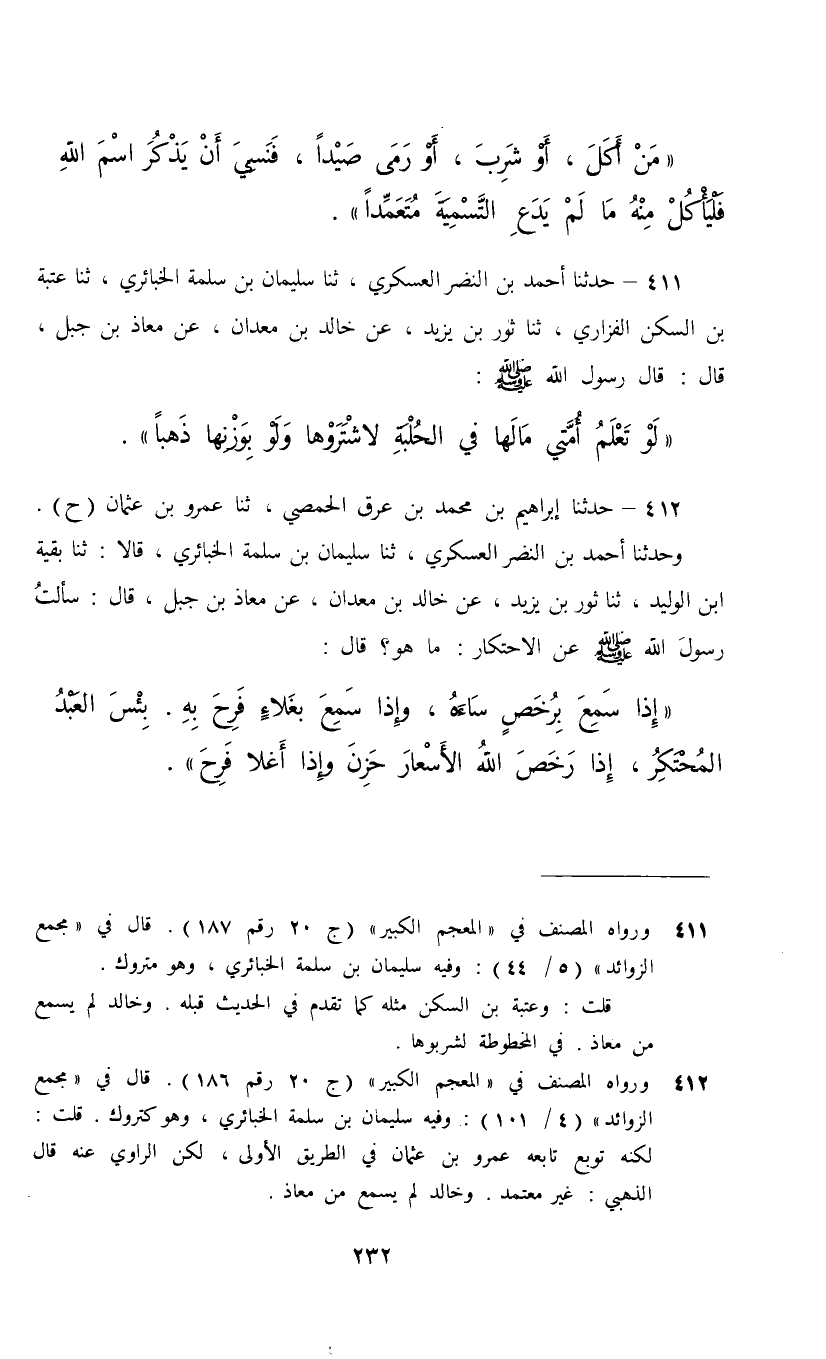 « مَنْ أَكَلَ ، أَوْ شَرِبَ ، أَوْ رَمَى صَيْداً ، فَنَسِيَ أَنْ يَذْكُرَ اسْمَ اللهِ
فَلْيَأْكُلْ مِنْهُ مَا لَمْ يَدَعِ التَّسْمِيَةَ مُتَعَمِّداً » .
٤١١ – حدثنا أحمد بن النضر العسكري ، ثنا سليمان بن سلمة الخبائري ، ثنا عتبة
بن السكن الفزاري ، ثنا ثور بن يزيد ، عن خالد بن معدان ، عن معاذ بن جبل ،
قال : قال رسول الله ﷺ :
« لَوْ تَعْلَمُ أُمَّتِي مَالَها في الحُلْبَةِ لاشْتَرَوْها وَلَوْ بِوَزْنِها ذَهباً » .
٤١٢ – حدثنا إبراهيم بن محمد بن عرق الحمصي ، ثنا عمرو بن عثمان ( ح ) .
وحدثنا أحمد بن النضر العسكري ، ثنا سليمان بن سلمة الخبائري ، قالا : ثنا بقية
ابن الوليد ، ثنا ثور بن يزيد ، عن خالد بن معدان ، عن معاذ بن جبل ، قال : سألتُ
رسولَ الله ﷺ عن الاحتكار : ما هو؟ قال :
« إِذا سَمِعَ بِرُخَصٍ سَاءَهُ ، وإِذا سَمِعَ بغَلاءٍ فَرِحَ بِهِ . بِئْسَ العَبْدُ
المُحْتَكِرُ ، إِذا رَخَصَ اللهُ الأَسْعارَ حَزِنَ وإِذا أَغلا فَرِحَ » .
٤١١ ورواه المصنف في « المعجم الكبير » ( ج ٢٠ رقم ١٨٧ ) . قال في « مجمع
الزوائد » ( ٥ / ٤٤ ) : وفيه سليمان بن سلمة الخبائري ، وهو متروك .
قلت : وعتبة بن السكن مثله كما تقدم في الحديث قبله . وخالد لم يسمع
من معاذ . في المخطوطة لشربوها .
٤١٢ ورواه المصنف في « المعجم الكبير » ( ج ٢٠ رقم ١٨٦ ) . قال في « مجمع
الزوائد » ( ٤ / ١٠١ ) : وفيه سليمان بن سلمة الخبائري ، وهو كتروك . قلت :
لكنه توبع تابعه عمرو بن عثمان في الطريق الأولى ، لكن الراوي عنه قال
الذهبي : غير معتمد . وخالد لم يسمع من معاذ .
٢٣٢